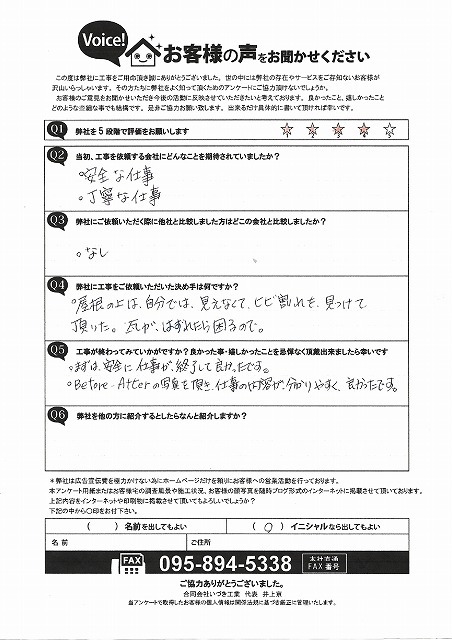 Voice!
お客様の声をお聞かせください
この度は弊社に工事をご用命頂き誠にありがとうございました。世の中には弊社の存在やサービスをご存知ないお客様が
沢山いらっしゃいます。その方たちに弊社をよく知って頂くためのアンケートにご協力頂けないでしょうか。
お客様のご意見をお聞かせいただき今後の活動に反映させていただきたいと考えております。良かったこと、嬉しかったこと
どのような些細な事でも結構です。是非ご協力お願い致します。出来るだけ具体的に書いて頂ければ幸いです。
Q1 弊社を5段階で評価をお願いします
1 2 3 4 5
Q2 当初、工事を依頼する会社にどんなことを期待されていましたか?
○安全な仕事
○丁寧な仕事
Q3 弊社にご依頼いただく際に他社と比較しました方はどこの会社と比較しましたか?
○なし
Q4 弊社に工事をご依頼いただいた決め手は何ですか?
○屋根の上は、自分では、見えなくて、ヒビ割れを、見つけて
頂けた。瓦が、はずれたら困るので。
Q5 工事が終わってみていかがですか?良かった事・嬉しかったことを忌憚なく頂戴出来ましたら幸いです
○まずは、安全に仕事が、終了して良かったです。
○Before-Afterの写真を頂き、仕事の内容が、分かりやすく、良かったです。
Q6 弊社を他の方に紹介するとしたらなんと紹介しますか?
*弊社は広告宣伝費を極力かけない為にホームページだけを頼りにお客様への営業活動を行っております。
本アンケート用紙またはお客様宅の調査風景や施工状況、お客様の顔写真を随時ブログ形式のインターネットに掲載させて頂いております。
上記内容をインターネットや印刷物に掲載させて頂いてもよろしいでしょうか?
下記の中から〇印をお付け下さい。
( ) 名前を出してもよい
( ○ ) イニシャルなら出してもよい
名前
ご住所
FAX 095-894-5338 本社直通 FAX番号
ご協力ありがとうございました。
合同会社いづき工業 代表 井上京
当アンケートで取得したお客様の個人情報は関係法規に基づき厳正に管理いたします。